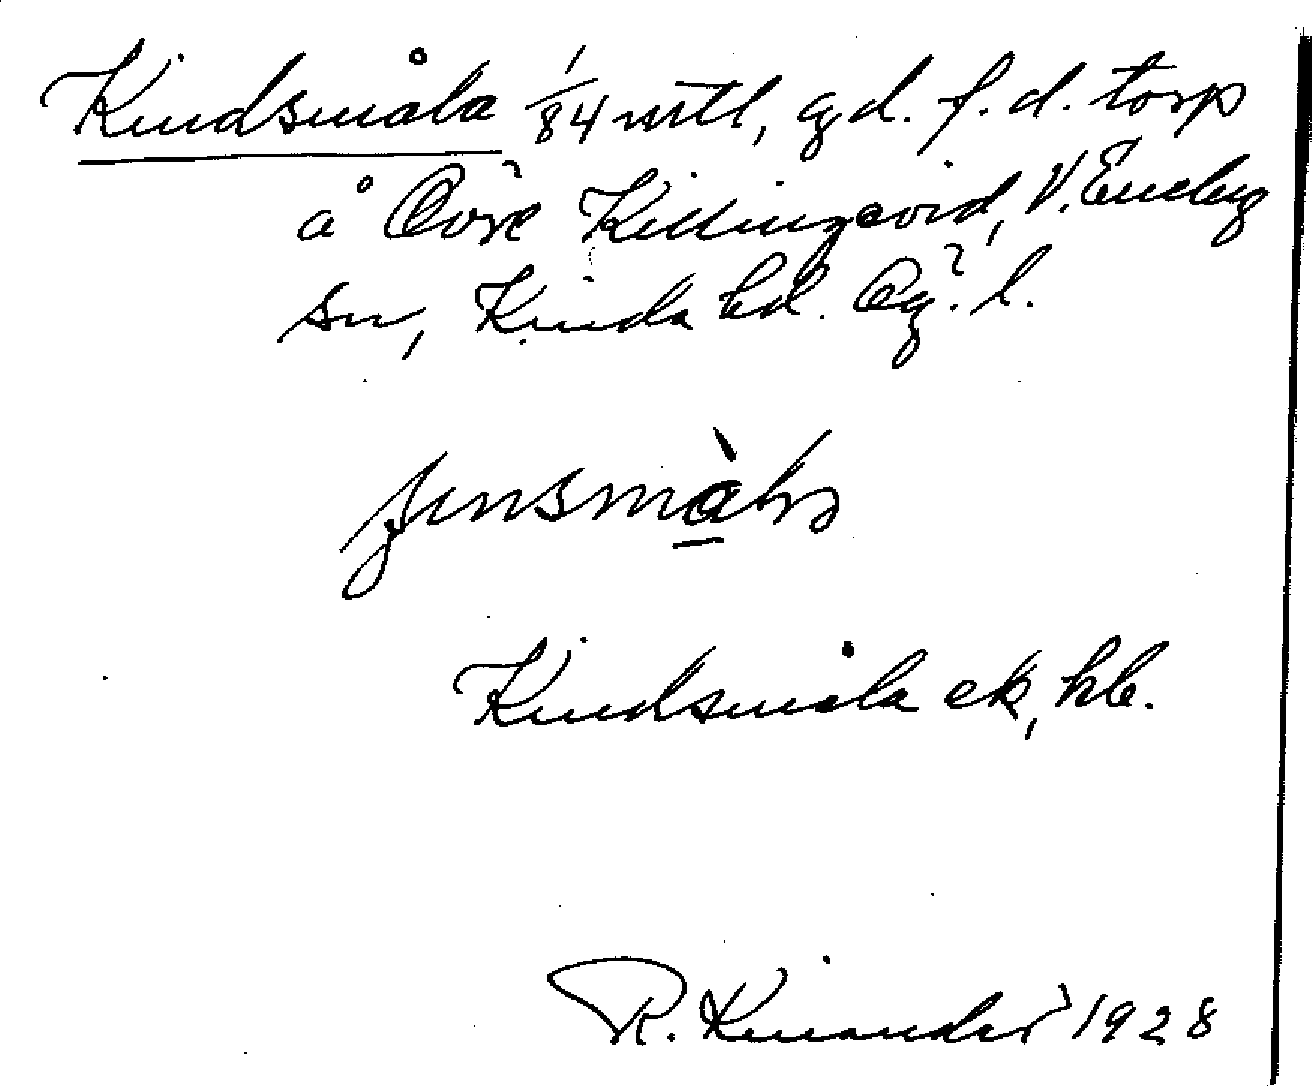 Kindsmåla 1/84 mtl, gd. f. d. torp
å Övre Killingevid, V. Eneby
sn, Kinda hd. Ög. l.
Kindsmåla ek, hb.
R. Kinander 1928